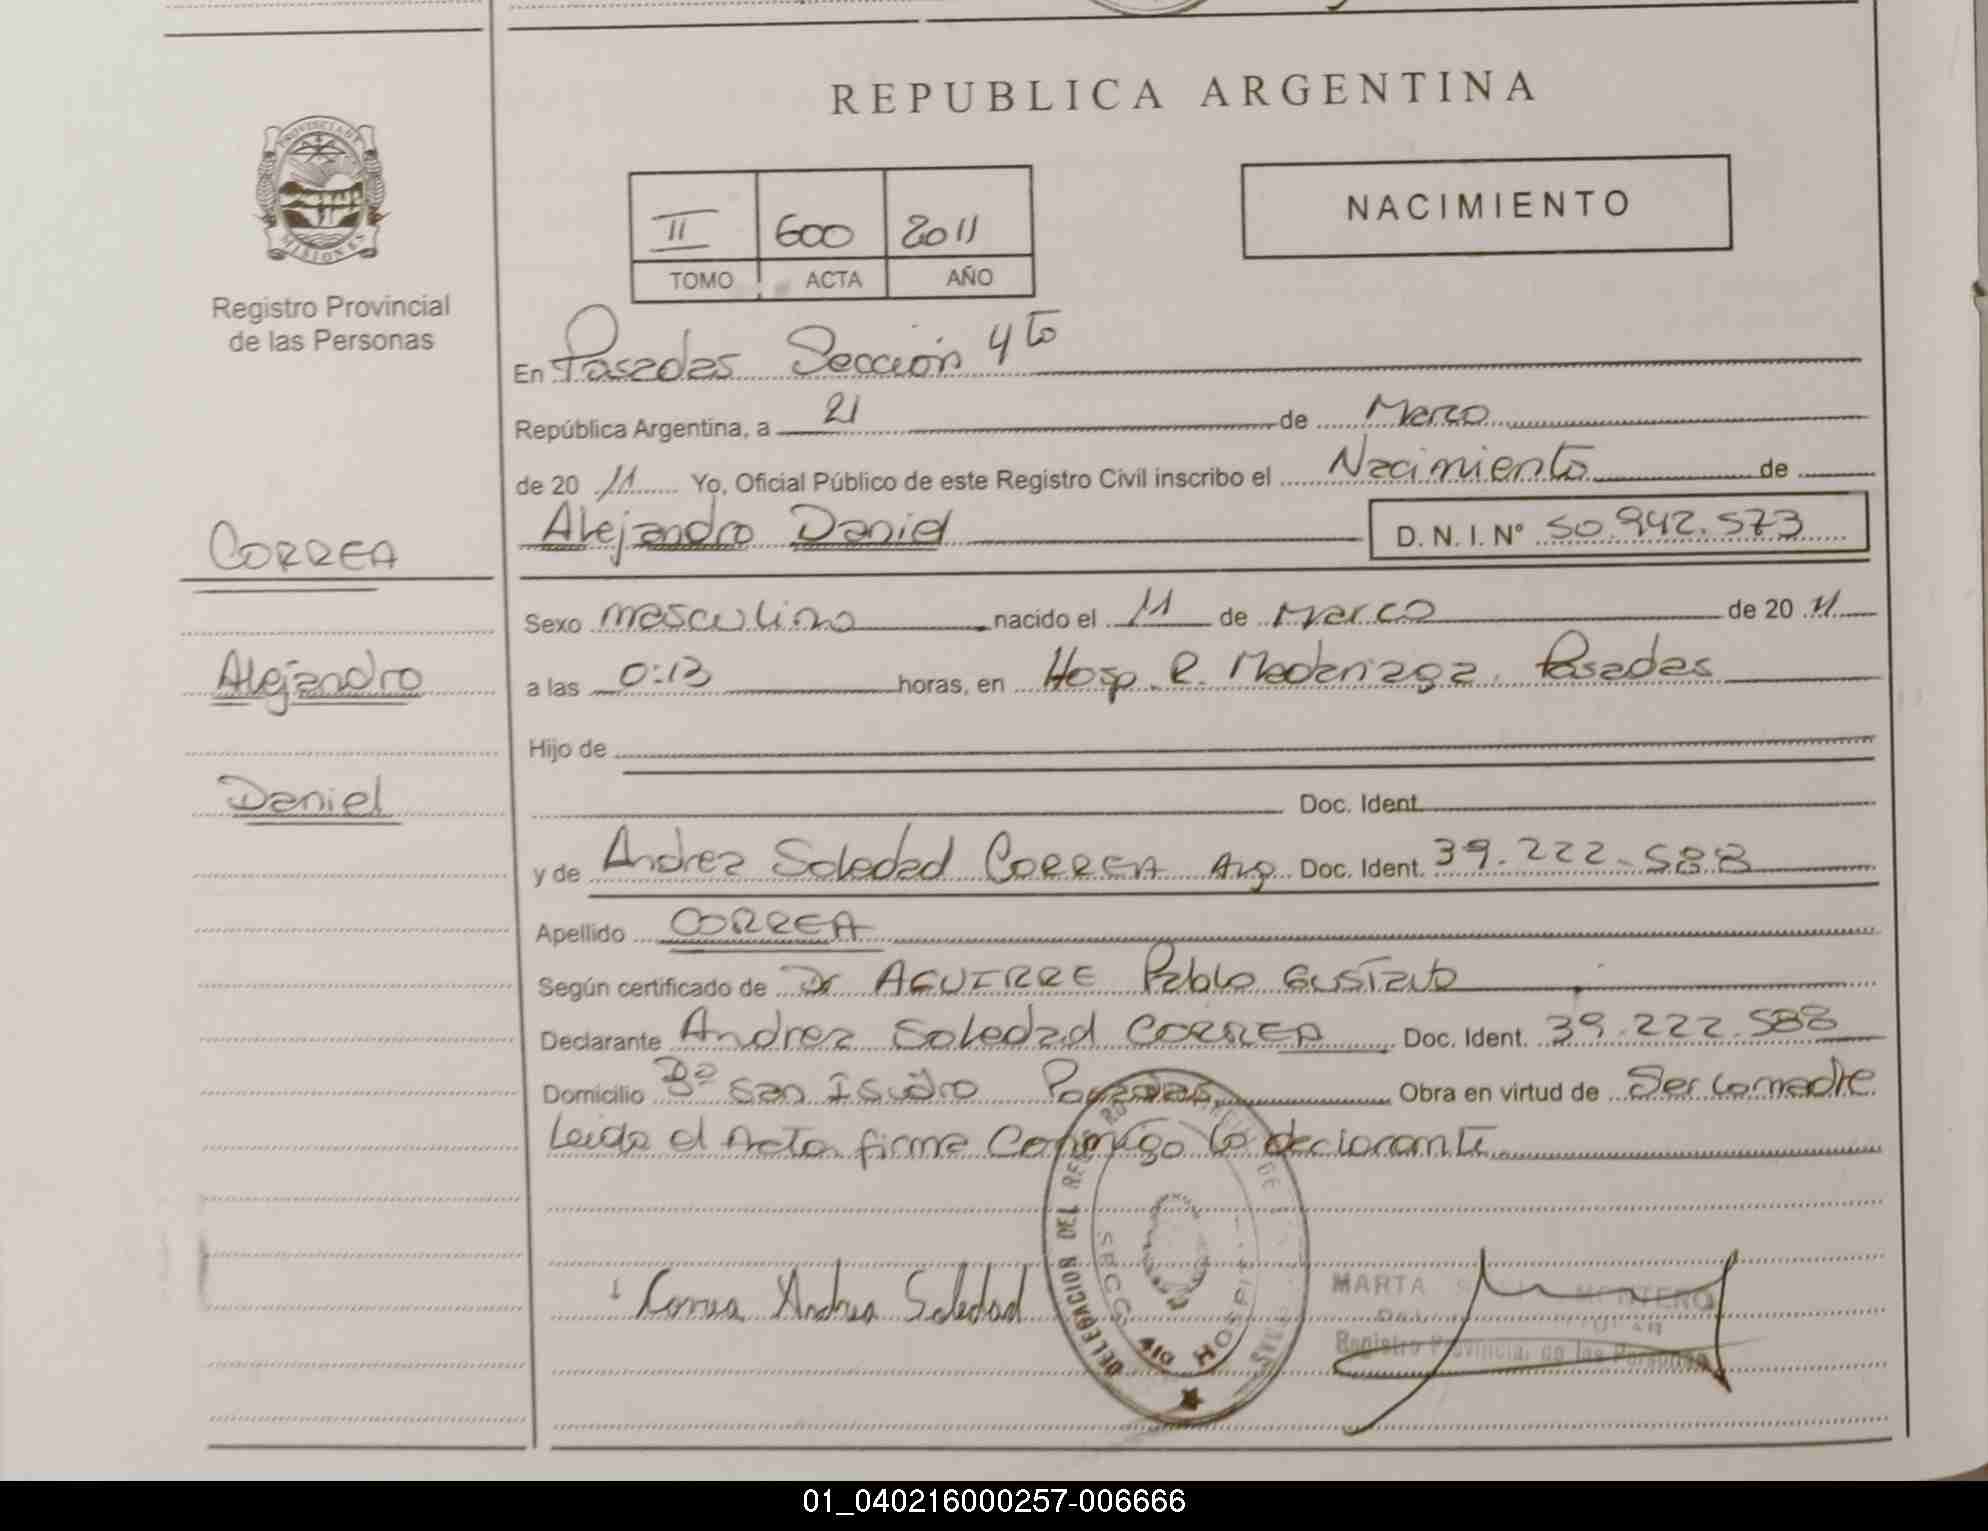 REPUBLICA ARGENTINA
PROVINCIA DE
MISIONES
Registro Provincial
de las Personas
II 600 2011
TOMO ACTA AÑO
NACIMIENTO
En Posadas Sección 4to
República Argentina, a 21 de Marzo
de 20 11 Yo, Oficial Público de este Registro Civil inscribo el Nacimiento de
CORREA
Alejandro Daniel D. N. I. Nº 50.942.573
Sexo masculino nacido el 11 de Marzo de 20 11
Alejandro
a las 0:13 horas, en Hosp. R. Madariaga. Posadas
Hijo de
Daniel
Doc. Ident.
y de Andrea Soledad CORREA Arg. Doc. Ident. 39.222.588
Apellido CORREA
Según certificado de Dr AGUIRRE Pablo Gustavo
Declarante Andrea Soledad CORREA Doc. Ident. 39.222.588
Domicilio Bº San Isidro Posadas Obra en virtud de Ser la madre
Leida el Acta firma Conmigo la declarante
Correa Andrea Soledad
DELEGACION DEL
SECC. 4ta HOSPIT
MARTA MONTERO
Registro Provincial de las Personas
01_040216000257-006666